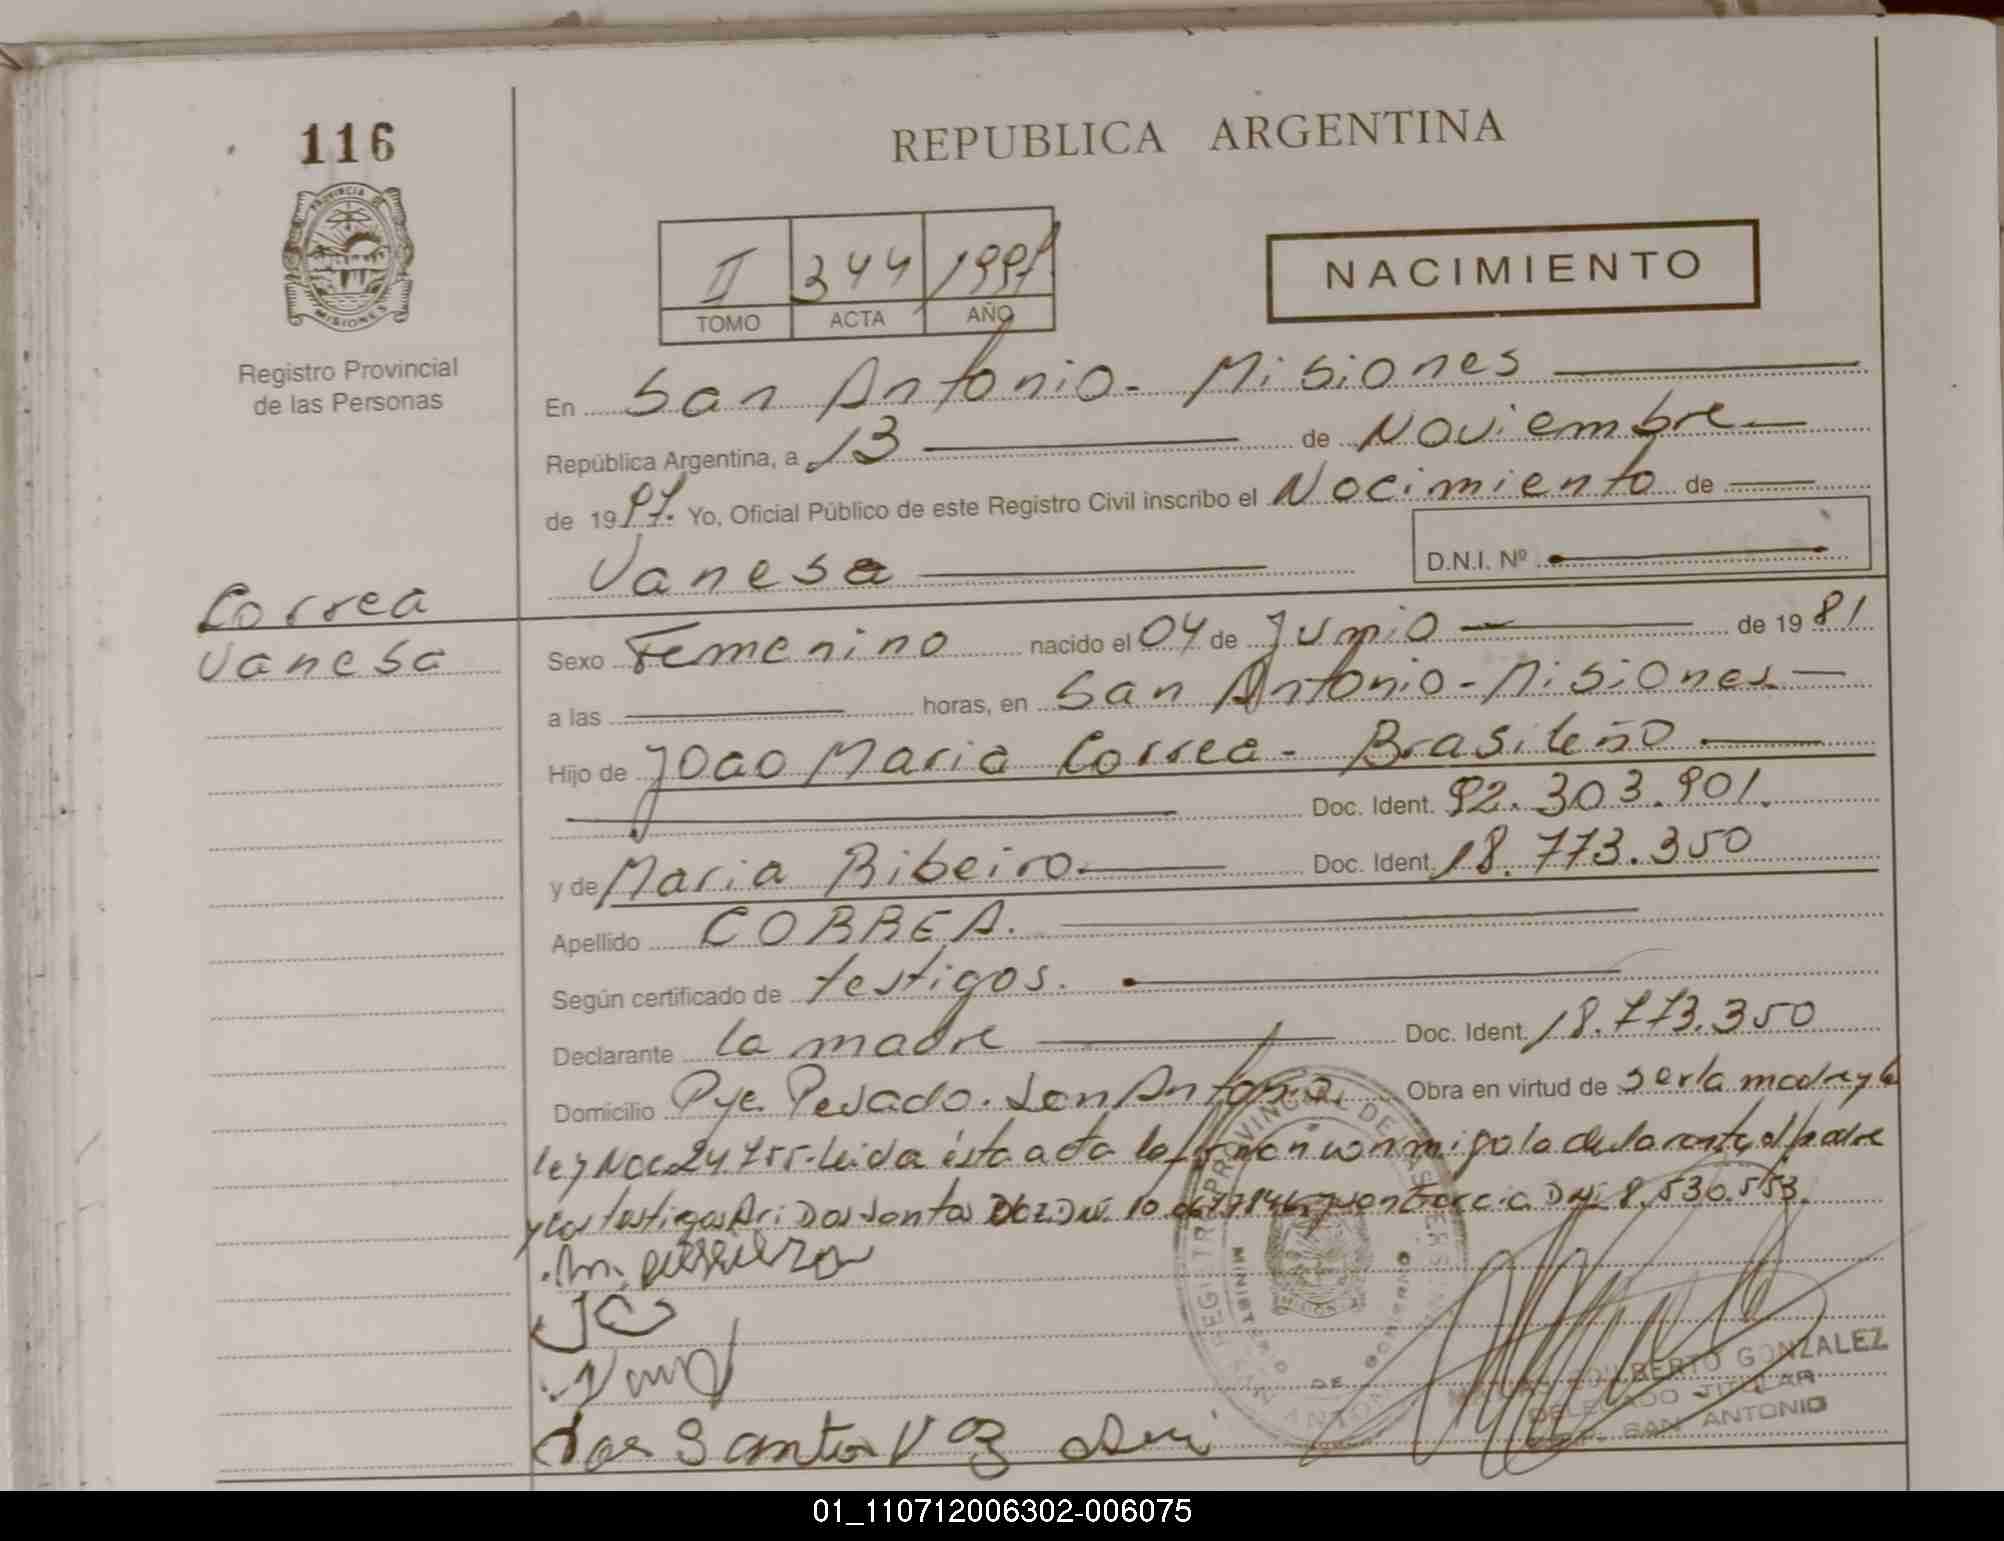 116
REPUBLICA ARGENTINA
PROVINCIA DE
MISIONES
II 344 1997
TOMO ACTA AÑO
NACIMIENTO
Registro Provincial
de las Personas
En San Antonio - Misiones
República Argentina, a 13 de Noviembre
de 1997. Yo, Oficial Público de este Registro Civil inscribo el Nacimiento de
Vanesa D.N.I. Nº
Correa
Vanesa
Sexo Femenino nacido el 04 de Junio de 1981
a las horas, en San Antonio - Misiones
Hijo de Joao Maria Correa - Brasileño
Doc. Ident. 92.303.901.
y de Maria Ribeiro Doc. Ident. 18.773.350
Apellido CORREA.
Según certificado de testigos.
Declarante la madre Doc. Ident. 18.773.350
Domicilio Pje Pesado. San Antonio. Obra en virtud de ser la madre y la
ley Nac 24.755. Leida ésta acta la firman conmigo la declarante, el padre
y los testigos Ari Dos Santos Juan Garcia DNI 8.530.553.
Dos Santos Vaz Ari
REGISTRO PROVINCIAL DE LAS PERSONAS
MINISTERIO DE GOBIERNO
SAN ANTONIO
GONZALEZ
DELEGADO TITULAR
SAN ANTONIO
01_110712006302-006075